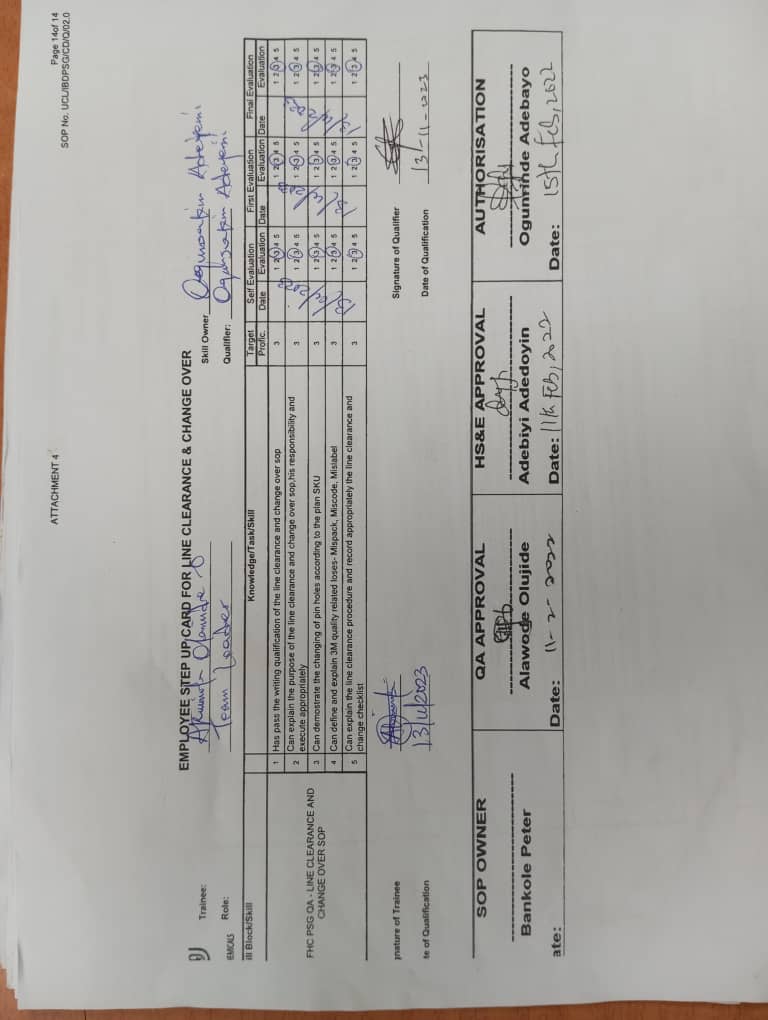 Page 14of 14
SOP No. UCL/IBDPSG/CD/Q/02.0
ATTACHMENT 4
EMPLOYEE STEP UP CARD FOR LINE CLEARANCE & CHANGE OVER
Trainee: Skill Owner Adeyemi
EMICALS Role: Team Leader Qualifier: Adeyemi
ill Block/Skill Knowledge/Task/Skill Target Profic. Self Evaluation First Evaluation Final Evaluation
Date Evaluation Date Evaluation Date Evaluation
FHC PSG QA - LINE CLEARANCE AND CHANGE OVER SOP
1 Has pass the writing qualification of the line clearance and change over sop 3 1 2 3 4 5 1 2 3 4 5 1 2 3 4 5
2 Can explain the purpose of the line clearance and change over sop,his responsibility and
execute appropriately 3 1 2 3 4 5 1 2 3 4 5 1 2 3 4 5
3 Can demostrate the changing of pin holes according to the plan SKU 3 1 2 3 4 5 1 2 3 4 5 1 2 3 4 5
4 Can define and explain 3M quality related loses- Mispack, Miscode, Mislabel 3 1 2 3 4 5 1 2 3 4 5 1 2 3 4 5
5 Can explain the line clearance procedure and record appropriately the line clearance and
change checklist 3 1 2 3 4 5 1 2 3 4 5 1 2 3 4 5
gnature of Trainee Signature of Qualifier
te of Qualification 13/11/2023 Date of Qualification 13-11-2023
SOP OWNER QA APPROVAL HS&E APPROVAL AUTHORISATION
Bankole Peter Alawode Olujide Adebiyi Adedoyin Ogunrinde Adebayo
ate: Date: 11-2-2022 Date: 11th Feb, 2022 Date: 15th Feb, 2022